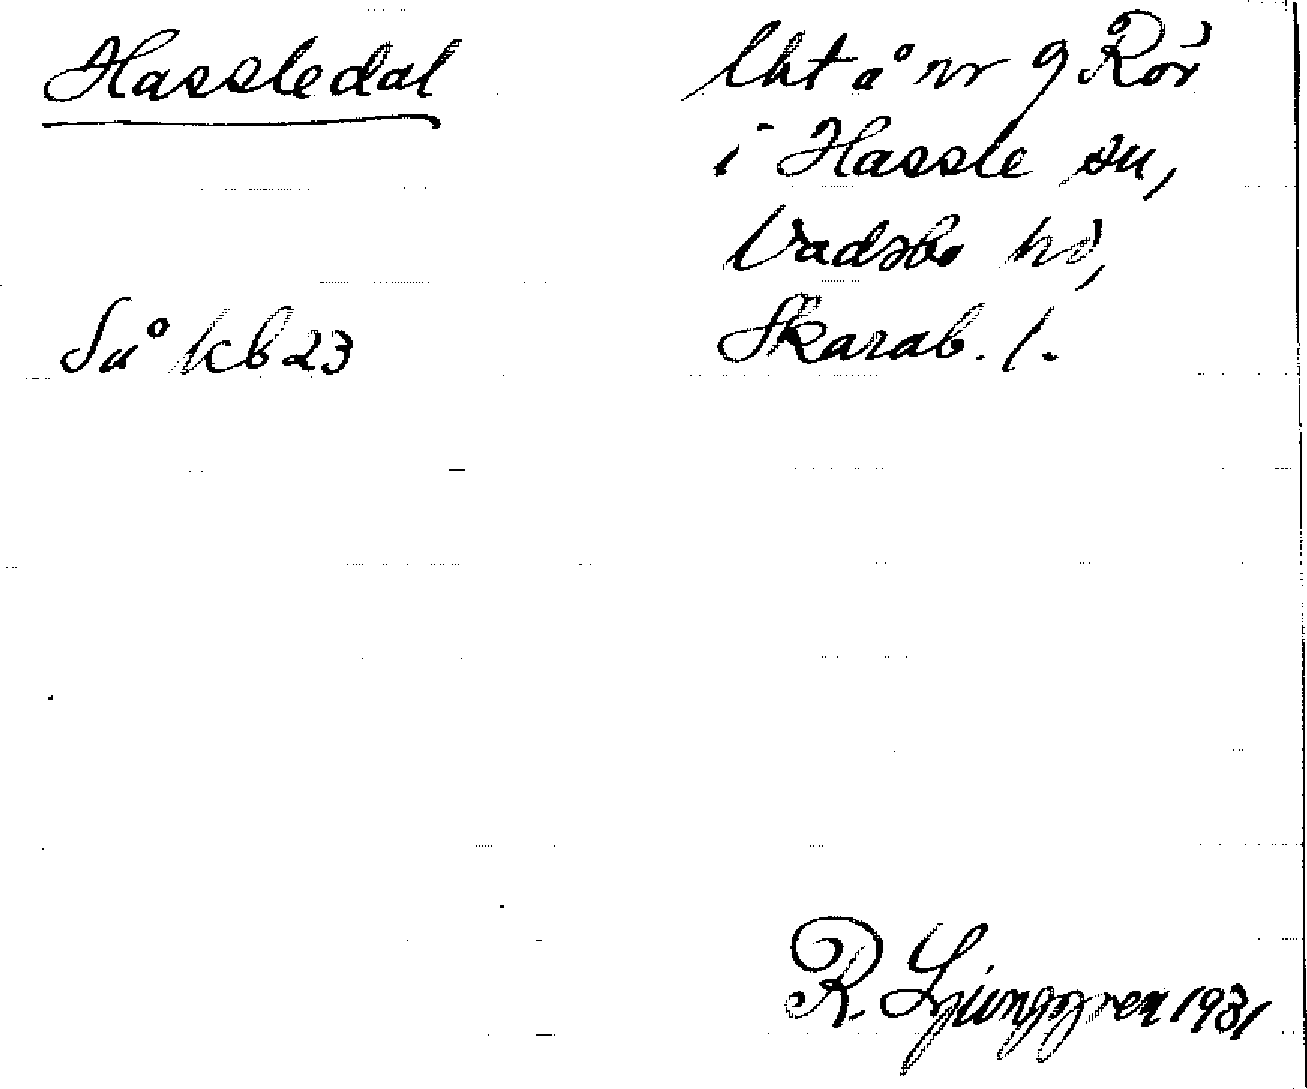 Hassledal
Så kb 23
lht å nr 9 Rör
i Hassle sn,
Vadsbo hd,
Skarab. l.
R. Ljunggren 1931